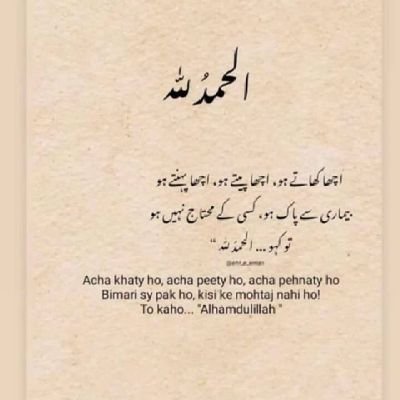 الحمدُ للہ
اچھا کھاتے ہو، اچھا پیتے ہو، اچھا پہنتے ہو
بیماری سے پاک ہو، کسی کے محتاج نہیں ہو
تو کہو ... الحمدُ للہ “
Acha khaty ho, acha peety ho, acha pehnaty ho
Bimari sy pak ho, kisi ke mohtaj nahi ho!
To kaho... "Alhamdulillah "